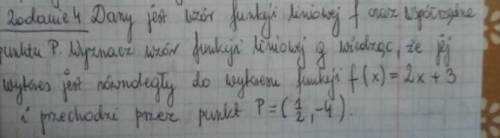 Zadanie 4 Dany jest wzór funkcji liniowej f oraz współrzędne
punktu P. Wyznacz wzór funkcji liniowej g wiedząc, że jej
wykres jest równoległy do wykresu funkcji f(x) = 2x + 3
i przechodzi przez punkt P = (1/2, -4).